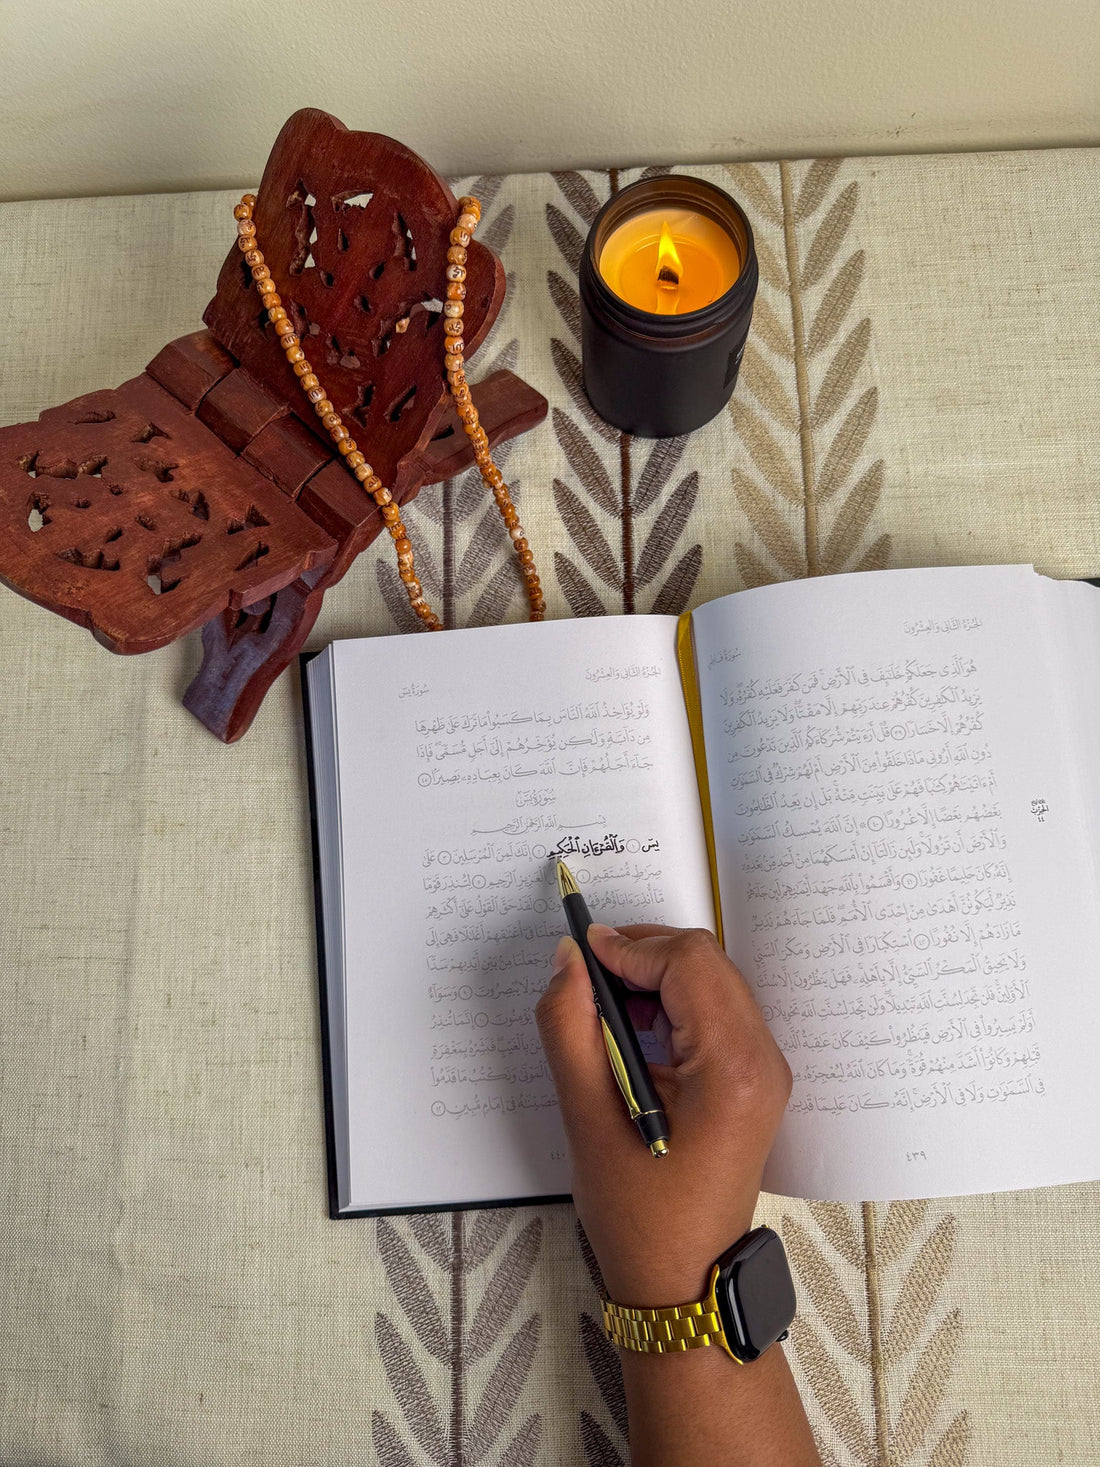 الجُزْءُ الثَّانِي وَالعِشْرُونَ
سُورَةُ فَاطِر
هُوَ ٱلَّذِى جَعَلَكُمْ خَلَٰٓئِفَ فِى ٱلْأَرْضِ فَمَن كَفَرَ فَعَلَيْهِ كُفْرُهُۥ وَلَا
يَزِيدُ ٱلْكَٰفِرِينَ كُفْرُهُمْ عِندَ رَبِّهِمْ إِلَّا مَقْتًا وَلَا يَزِيدُ ٱلْكَٰفِرِينَ
كُفْرُهُمْ إِلَّا خَسَارًا ٣٩ قُلْ أَرَءَيْتُمْ شُرَكَآءَكُمُ ٱلَّذِينَ تَدْعُونَ مِن
دُونِ ٱللَّهِ أَرُونِى مَاذَا خَلَقُوا۟ مِنَ ٱلْأَرْضِ أَمْ لَهُمْ شِرْكٌ فِى ٱلسَّمَٰوَٰتِ
أَمْ ءَاتَيْنَٰهُمْ كِتَٰبًا فَهُمْ عَلَىٰ بَيِّنَتٍ مِّنْهُ بَلْ إِن يَعِدُ ٱلظَّٰلِمُونَ
بَعْضُهُم بَعْضًا إِلَّا غُرُورًا ٤٠ ۞ إِنَّ ٱللَّهَ يُمْسِكُ ٱلسَّمَٰوَٰتِ
وَٱلْأَرْضَ أَن تَزُولَا وَلَئِن زَالَتَآ إِنْ أَمْسَكَهُمَا مِنْ أَحَدٍ مِّنۢ بَعْدِهِۦٓ
إِنَّهُۥ كَانَ حَلِيمًا غَفُورًا ٤١ وَأَقْسَمُوا۟ بِٱللَّهِ جَهْدَ أَيْمَٰنِهِمْ لَئِن جَآءَهُمْ
نَذِيرٌ لَّيَكُونُنَّ أَهْدَىٰ مِنْ إِحْدَى ٱلْأُمَمِ فَلَمَّا جَآءَهُمْ نَذِيرٌ
مَّا زَادَهُمْ إِلَّا نُفُورًا ٤٢ ٱسْتِكْبَارًا فِى ٱلْأَرْضِ وَمَكْرَ ٱلسَّيِّئِ
وَلَا يَحِيقُ ٱلْمَكْرُ ٱلسَّيِّئُ إِلَّا بِأَهْلِهِۦ فَهَلْ يَنظُرُونَ إِلَّا سُنَّتَ
ٱلْأَوَّلِينَ فَلَن تَجِدَ لِسُنَّتِ ٱللَّهِ تَبْدِيلًا وَلَن تَجِدَ لِسُنَّتِ ٱللَّهِ تَحْوِيلًا ٤٣
أَوَلَمْ يَسِيرُوا۟ فِى ٱلْأَرْضِ فَيَنظُرُوا۟ كَيْفَ كَانَ عَٰقِبَةُ ٱلَّذِينَ
قَبْلِهِمْ وَكَانُوٓا۟ أَشَدَّ مِنْهُمْ قُوَّةً وَمَا كَانَ ٱللَّهُ لِيُعْجِزَهُۥ مِن
فِى ٱلسَّمَٰوَٰتِ وَلَا فِى ٱلْأَرْضِ إِنَّهُۥ كَانَ عَلِيمًا قَدِيرًا
٤٣٩
الجُزْءُ الثَّانِي وَالعِشْرُونَ
سُورَةُ يسٓ
وَلَوْ يُؤَاخِذُ ٱللَّهُ ٱلنَّاسَ بِمَا كَسَبُوا۟ مَا تَرَكَ عَلَىٰ ظَهْرِهَا
مِن دَآبَّةٍ وَلَٰكِن يُؤَخِّرُهُمْ إِلَىٰٓ أَجَلٍ مُّسَمًّى فَإِذَا
جَآءَ أَجَلُهُمْ فَإِنَّ ٱللَّهَ كَانَ بِعِبَادِهِۦ بَصِيرًۢا ٤٥
سُورَةُ يسٓ
بِسْمِ ٱللَّهِ ٱلرَّحْمَٰنِ ٱلرَّحِيمِ
يسٓ ١ وَٱلْقُرْءَانِ ٱلْحَكِيمِ ٢ إِنَّكَ لَمِنَ ٱلْمُرْسَلِينَ ٣ عَلَىٰ
صِرَٰطٍ مُّسْتَقِيمٍ ٤ ٱلْعَزِيزِ ٱلرَّحِيمِ ٥ لِتُنذِرَ قَوْمًا
مَّآ أُنذِرَ ءَابَآؤُهُمْ فَهُمْ ٦ لَقَدْ حَقَّ ٱلْقَوْلُ عَلَىٰٓ أَكْثَرِهِمْ
جَعَلْنَا فِىٓ أَعْنَٰقِهِمْ أَغْلَٰلًا فَهِىَ إِلَى
وَجَعَلْنَا مِنۢ بَيْنِ أَيْدِيهِمْ سَدًّا
لَا يُبْصِرُونَ ٩ وَسَوَآءٌ
يُؤْمِنُونَ ١٠ إِنَّمَا تُنذِرُ
بِٱلْغَيْبِ فَبَشِّرْهُ بِمَغْفِرَةٍ
ٱلْمَوْتَىٰ وَنَكْتُبُ مَا قَدَّمُوا۟
فِىٓ إِمَامٍ مُّبِينٍ ١٢
٤٤٠